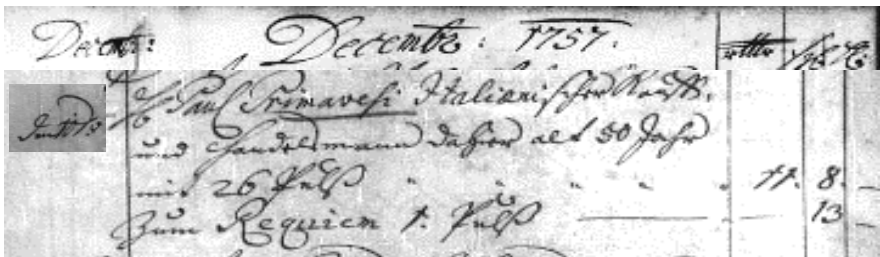 Decembr: Decembr: 1757. rthlr
H. Paul Primavesi Italianischer Kauff-
und Handelsmann dahier alt 50 Jahr
mit 26 Pulß " " " " " 11. 8. —
Zum Requiem 1. Pulß — 13 —